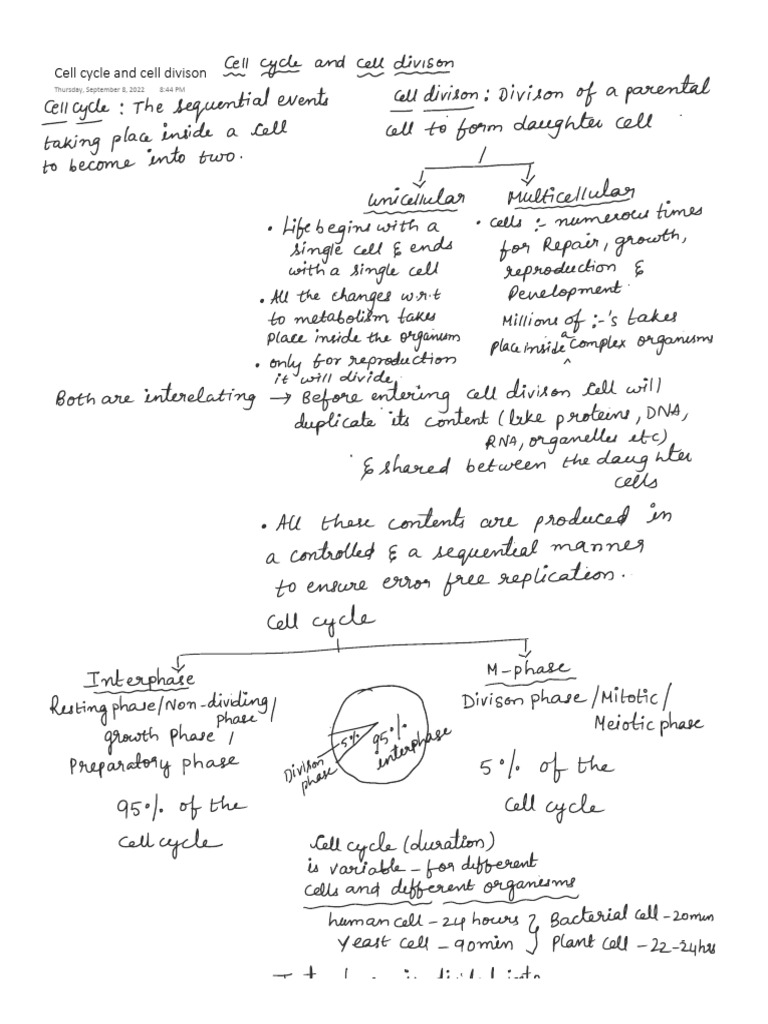 Cell cycle and cell divison
Cell cycle and cell divison
Thursday, September 8, 2022 8:44 PM
Cell cycle : The sequential events
taking place inside a cell
to become into two.
Cell divison : Divison of a parental
cell to form daughter cell
Unicellular
• Life begins with a
single cell & ends
with a single cell
• All the changes w.r.t
to metabolism takes
place inside the organism
• only for reproduction
it will divide.
Multicellular
• Cells :- numerous times
for Repair, growth,
reproduction &
Development.
Millions of :-'s takes
place inside a complex organisms
Both are interelating → Before entering cell divison cell will
duplicate its content (like proteins, DNA,
RNA, organelles etc)
& shared between the daughter
cells
• All these contents are produced in
a controlled & a sequential manner
to ensure error free replication.
Cell cycle
Interphase
Resting phase/Non-dividing
phase/
growth phase /
Preparatory phase
95% of the
cell cycle
5%
95%
interphase
Divison
phase
M-phase
Divison phase/Mitotic/
Meiotic phase
5% of the
cell cycle
Cell cycle (duration)
is variable - for different
cells and different organisms
human cell - 24 hours } Bacterial cell - 20min
Yeast cell - 90min } Plant cell - 22-24hrs